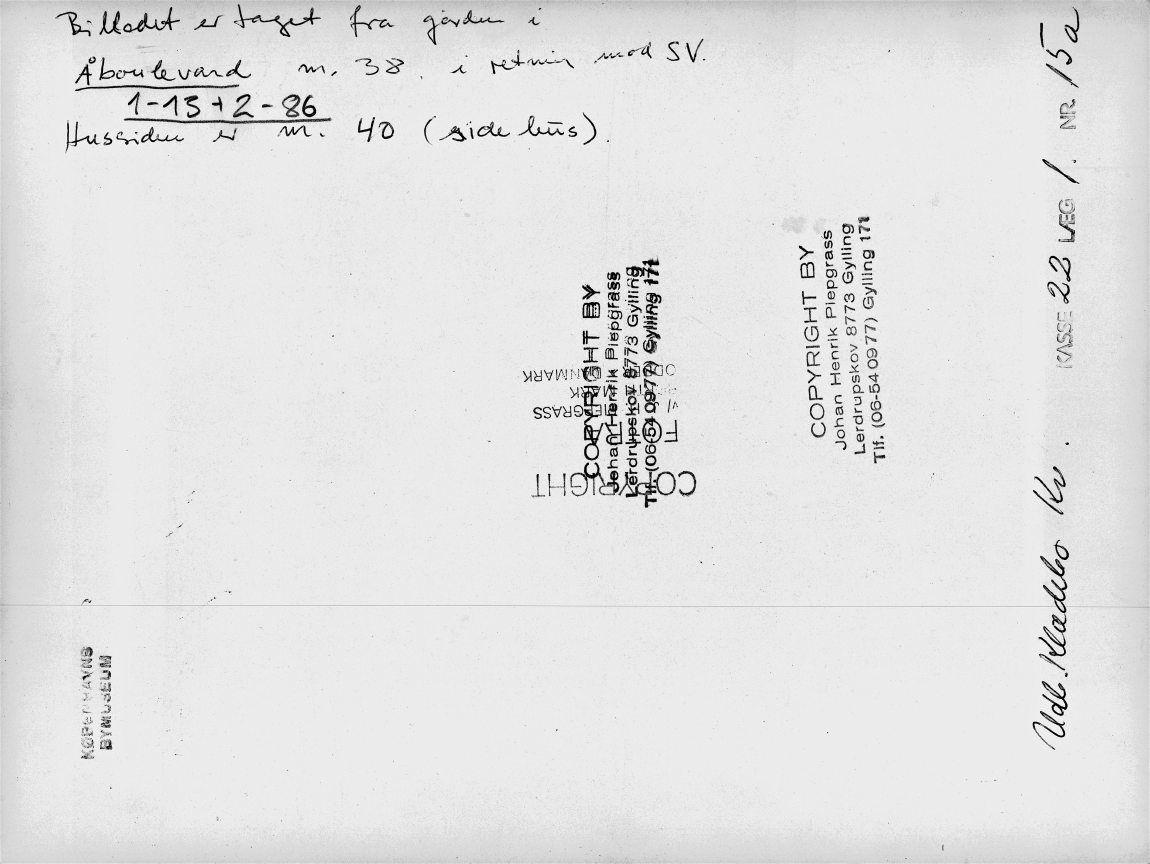 Billedet er taget fra gården i
Åboulevard nr. 38. i retning mod SV.
1-13+2-86
Hussiden er nr. 40 (sidehus).
COPYRIGHT BY
Johan Henrik Piepgrass
Lerdrupskov 8773 Gylling
Tlf. (06-54 0977) Gylling 171
COPYRIGHT
PIEPGRASS
DANMARK
COPYRIGHT BY
Johan Henrik Piepgrass
Lerdrupskov 8773 Gylling
Tlf. (06-54 0977) Gylling 171
Udb. Klædebo Kv. KASSE 22 LÆG 1. NR. 15a
KØBENHAVNS
BYMUSEUM